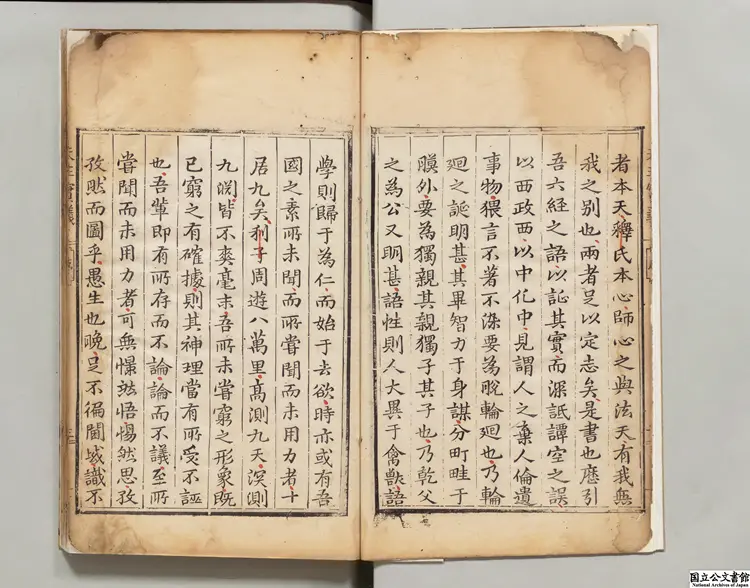 者本天釋氏本心師心之與法天有我無
我之別也兩者足以定志矣是書也歷引
吾六經之語以証其實而深詆譚空之誤
以西政西以中化中見謂人之棄人倫遺
事物猥言不著不染要為脫輪廻也乃輪
廻之誕明甚其畢智力于身謀分町畦于
膜外要為獨親其親獨子其子也乃乾父
之為公又明甚語性則人大異于禽獸語
學則歸于為仁而始于去欲時亦或有吾
國之素所未聞而所嘗聞而未用力者十
居九矣利子周遊八萬里高測九天深測
九淵皆不爽毫末吾所未嘗窮之形象既
已窮之有確據則其神理當有所受不誣
也吾輩即有所存而不論論而不議至所
嘗聞而未用力者可無憬然悟惕然思孜
孜然而圖乎愚生也晚足不徧閫域識不
国立公文書館
National Archives of Japan